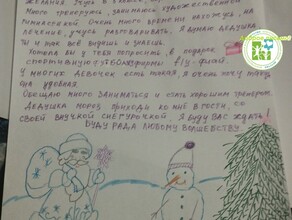 желания. Учусь в
Много тренируюсь, занимаюсь художественной
гимнастикой. Очень много времени нахожусь на
лечение, учусь разговаривать. Я думаю дедушка
ты и так всё видишь и знаешь.
Хотела бы у тебя попросить, в подарок
спортивную
У многих девочек есть такая, я очень хочу
она удобная.
Обещаю много заниматься и стать хорошим тренером.
Дедушка мороз приходи ко мне в гости, со
своей внучкой снегурочкой. Я буду вас ждать!
Буду рада любому волшебству